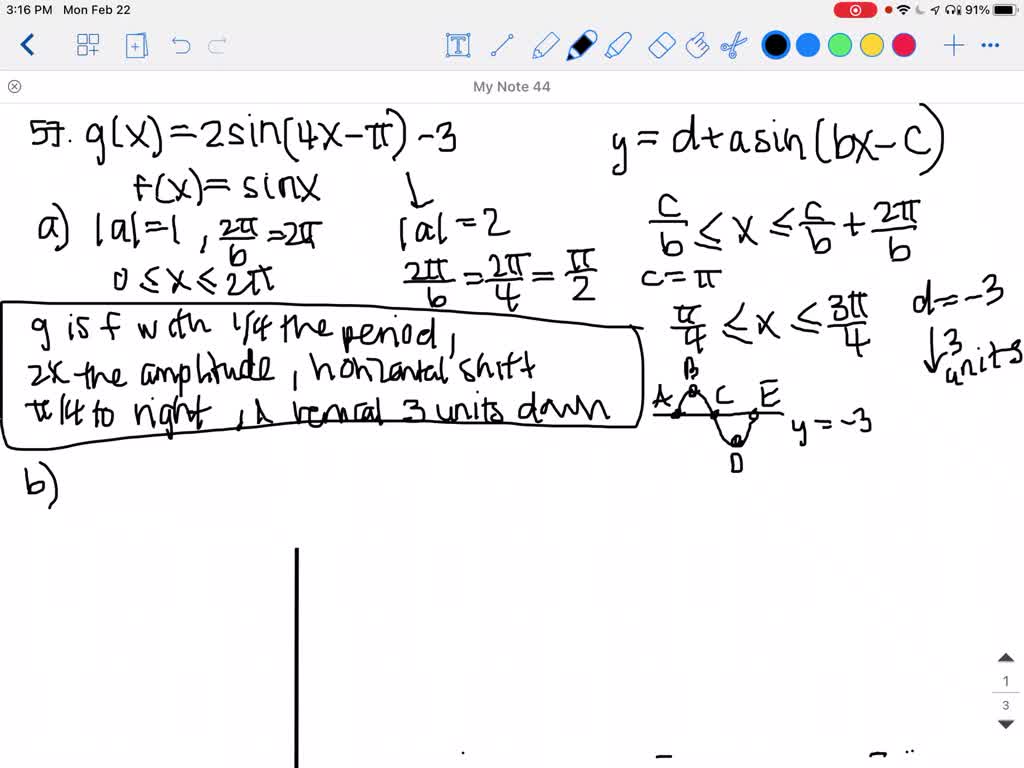 3:16 PM Mon Feb 22
91%
My Note 44
57. g(x)=2sin(4x-π)-3
f(x)=sinx
y=d+asin(bx-c)
a) |a|=1, 2π/b=2π
0≤x≤2π
↓
|a|=2
2π/b=2π/4=π/2
c/b≤x≤c/b+2π/b
c=π
π/4≤x≤3π/4
d=-3
↓3 units
g is f with 1/4 the period,
2x the amplitude, horizontal shift
π/4 to right, 3 units down
A B C D E
y=-3
b)
1
3